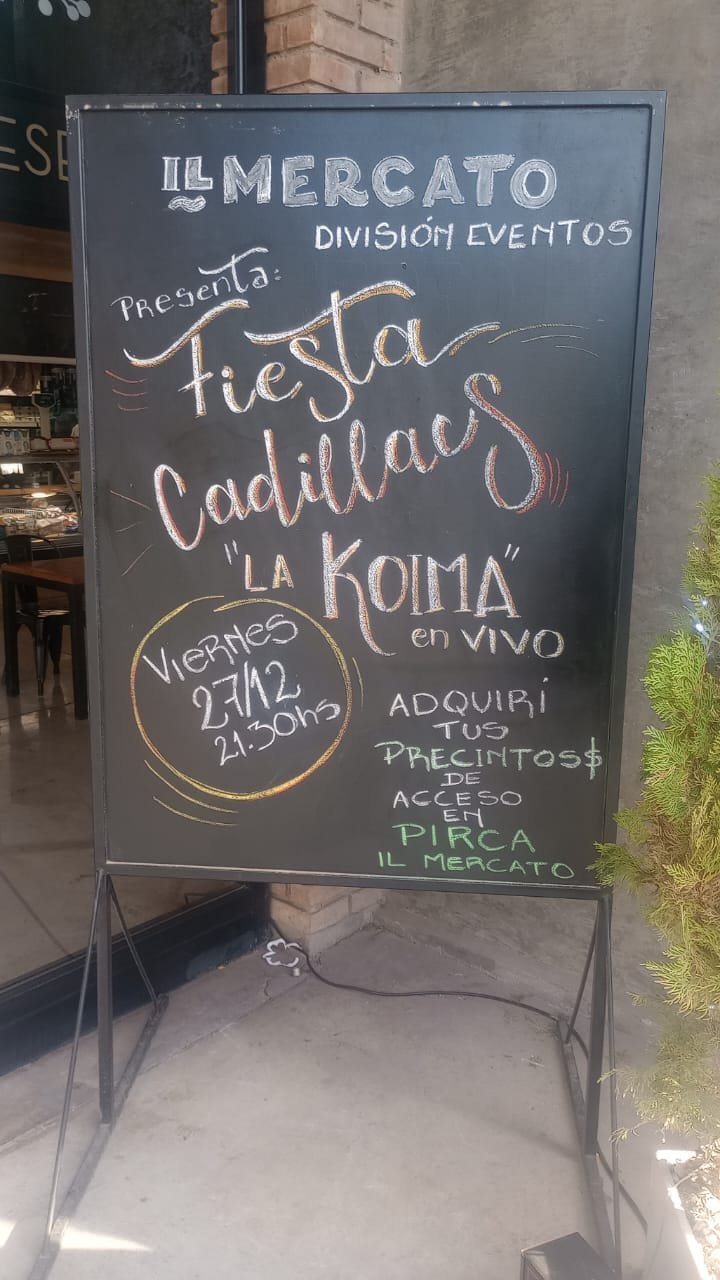 IL MERCATO
DIVISIÓN EVENTOS
Presenta:
Fiesta
Cadillacs
"LA KOIMA"
en VIVO
VIERNES
27/12
21.30hs
ADQUIRÍ
TUS
PRECINTOS$
DE
ACCESO
EN
PIRCA
IL MERCATO